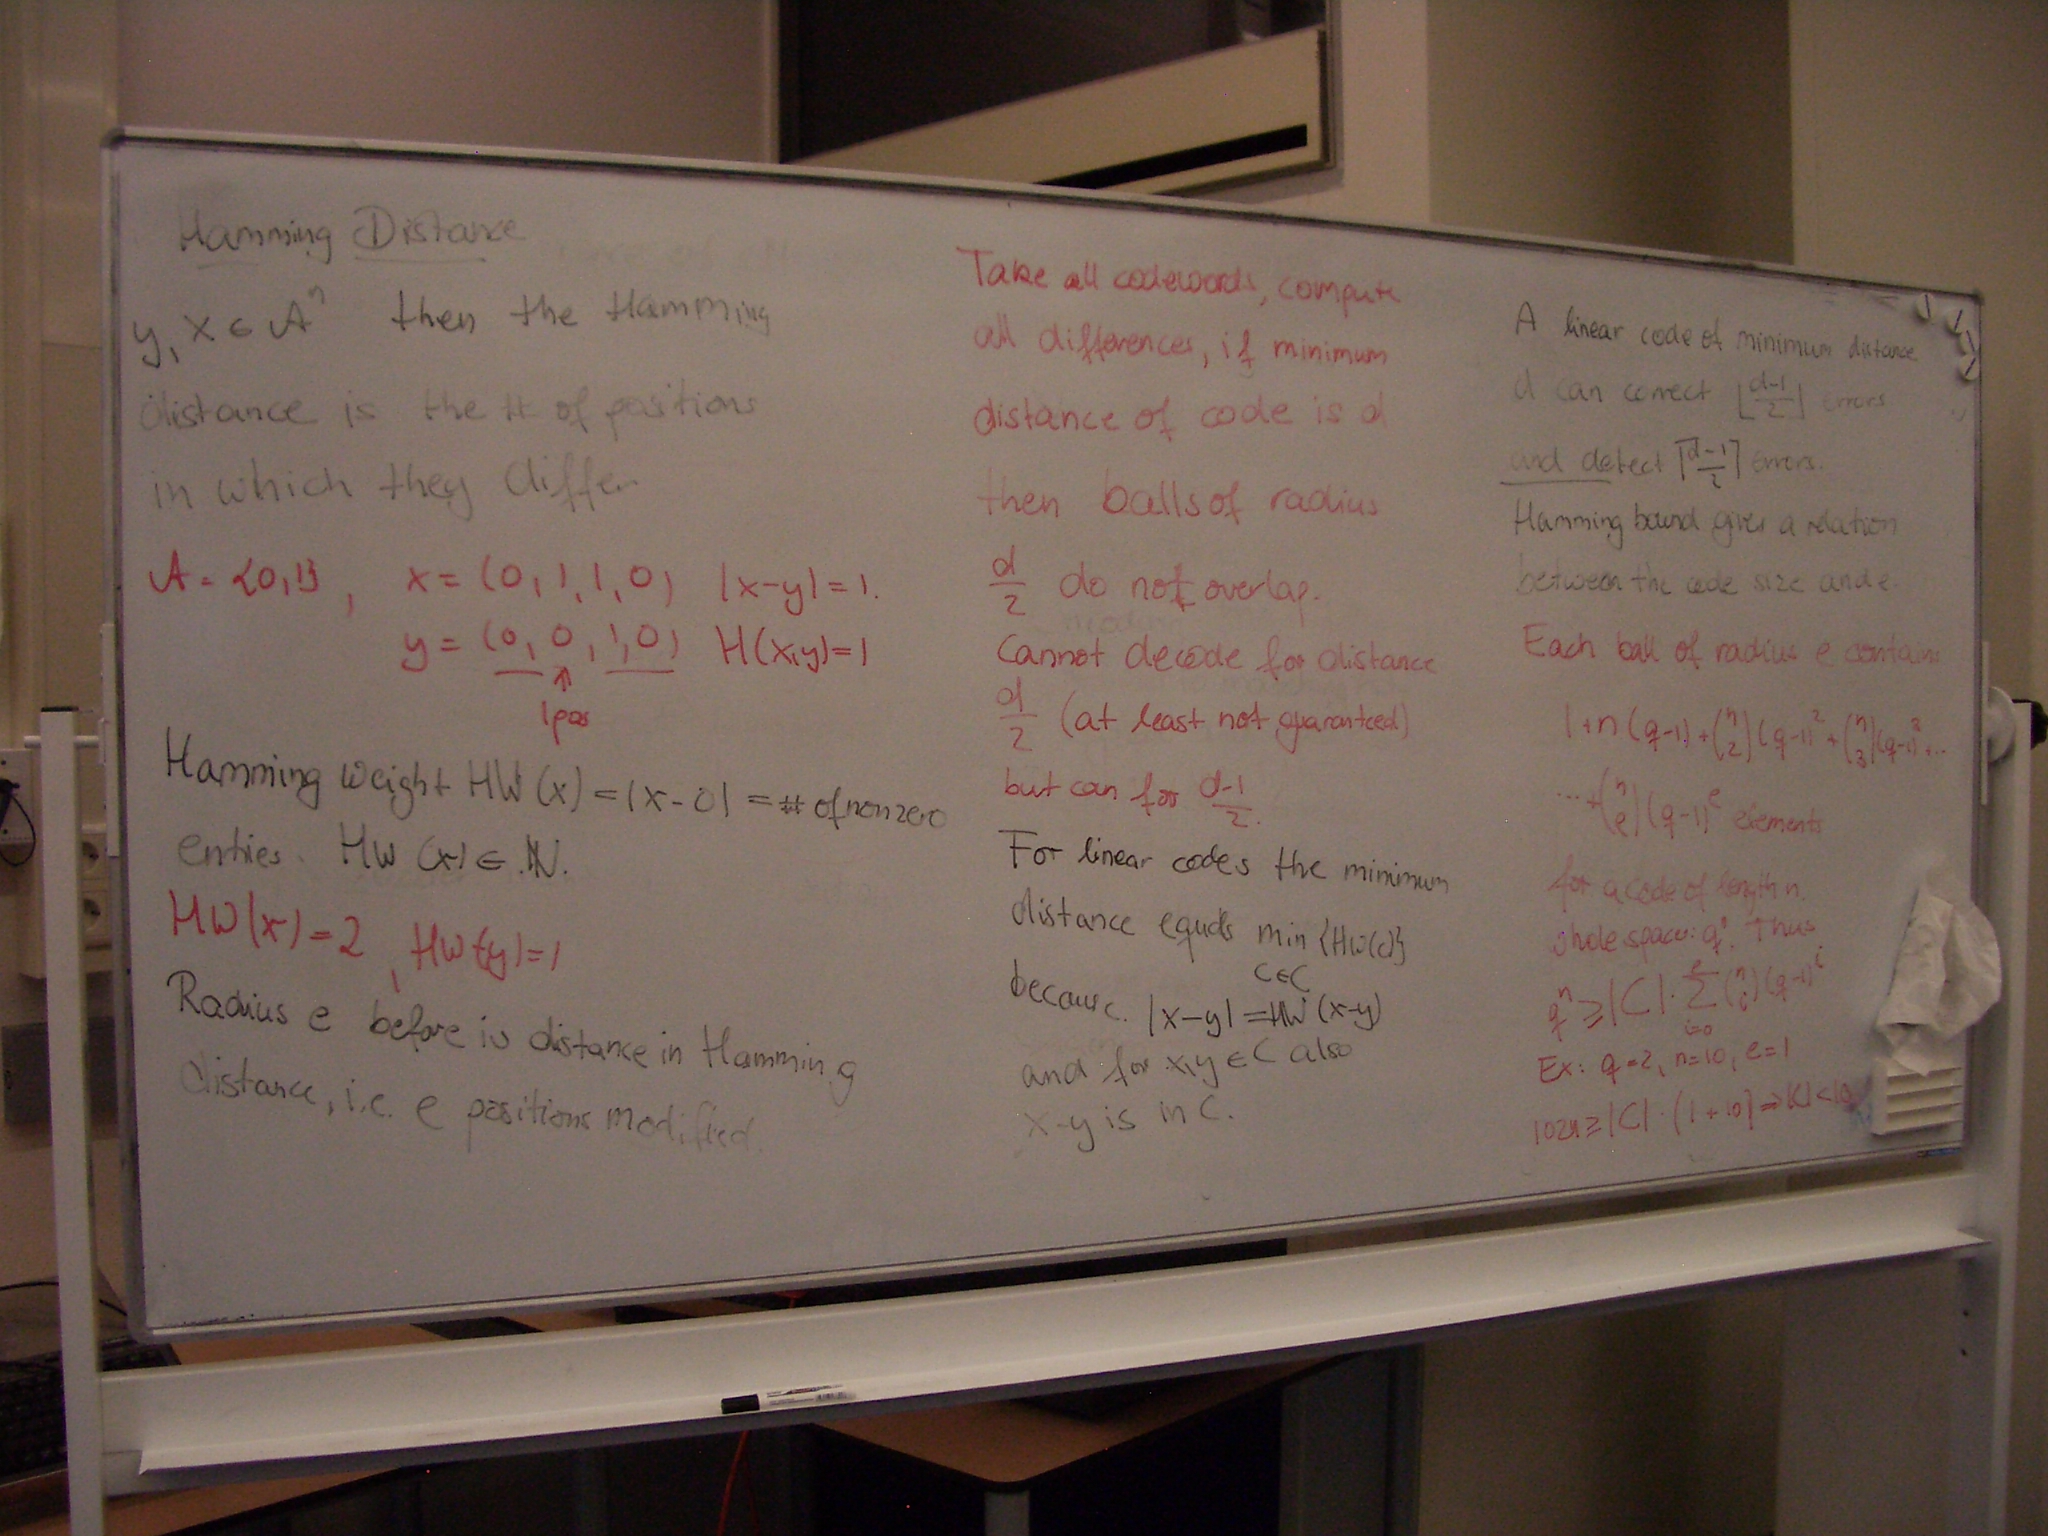 Hamming Distance
y, x ∈ A^n then the Hamming
distance is the # of positions
in which they differ
A = {0,1}, x = (0, 1, 1, 0) |x-y| = 1.
y = (0, 0, 1, 0) H(x,y) = 1
↑
1 pos
Hamming weight HW(x) = |x-0| = # of nonzero
entries. HW(x) ∈ ℕ.
HW(x) = 2, HW(y) = 1
Radius e before is distance in Hamming
distance, i.e. e positions modified.
Take all codewords, compute
all differences, if minimum
distance of code is d
then balls of radius
d/2 do not overlap.
Cannot decode for distance
d/2 (at least not guaranteed)
but can for d-1/2.
For linear codes the minimum
distance equals min {HW(c)}
c∈C
because |x-y| = HW(x-y)
and for x,y ∈ C also
x-y is in C.
A linear code of minimum distance
d can correct ⌊d-1/2⌋ errors
and detect ⌈d-1/2⌉ errors.
Hamming bound gives a relation
between the code size and e.
Each ball of radius e contains
1+n(q-1)+(n 2)(q-1)^2+(n 3)(q-1)^3+...
...+(n e)(q-1)^e elements
for a code of length n.
whole space: q^n. Thus
q^n ≥ |C| · Σ_{i=0}^{e} (n i)(q-1)^i
Ex: q=2, n=10, e=1
1024 ≥ |C| · (1+10) ⇒ |C| <